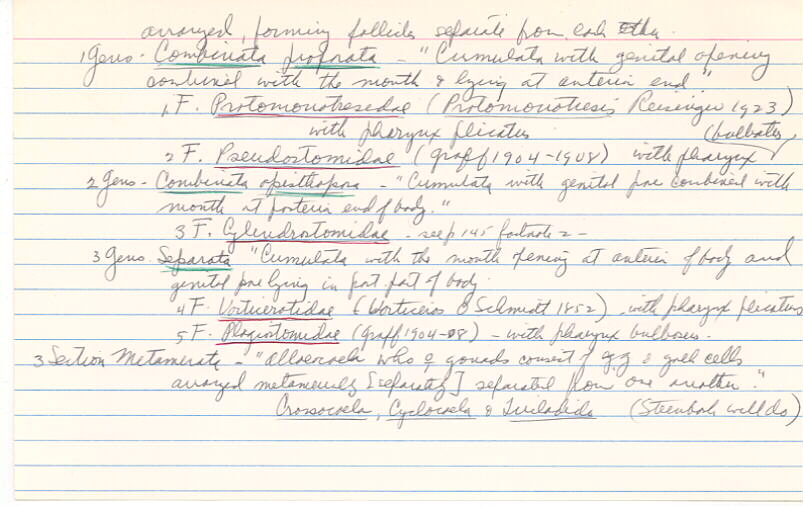 arranged, forming follicles separate from each other.
1 Genus - Combinata proporata - "Cumulata with genital opening
combined with the mouth & lying at anterior end"
1 F. Protomonotresidae (Protomonotresis Reisinger 1923)
with pharynx plicatus
2 F. Pseudostomidae (Graff 1904-1908) with pharynx (bulbatus)
2 Genus - Combinata opisthopora - "Cumulata with genital pore combined with
mouth at posterior end of body."
3 F. Cylindrostomidae - see p 145 footnote 2 -
3 Genus. Separata "Cumulata with the mouth opening at anterior of body and
genital pore lying in post. part of body.
4 F. Vorticerotidae (Vorticeros O Schmidt 1852) - with pharynx plicatus
5 F. Plagiostomidae (Graff 1904-08) - with pharynx bulbosus.
3 Section Metamerata - "Alloeocoela who ♀ gonads consist of g.g & yolk cells
arranged metamerically [separately] separated from one another."
Crossocoela, Cyclocoela & Tricladida (Steinbock will do)